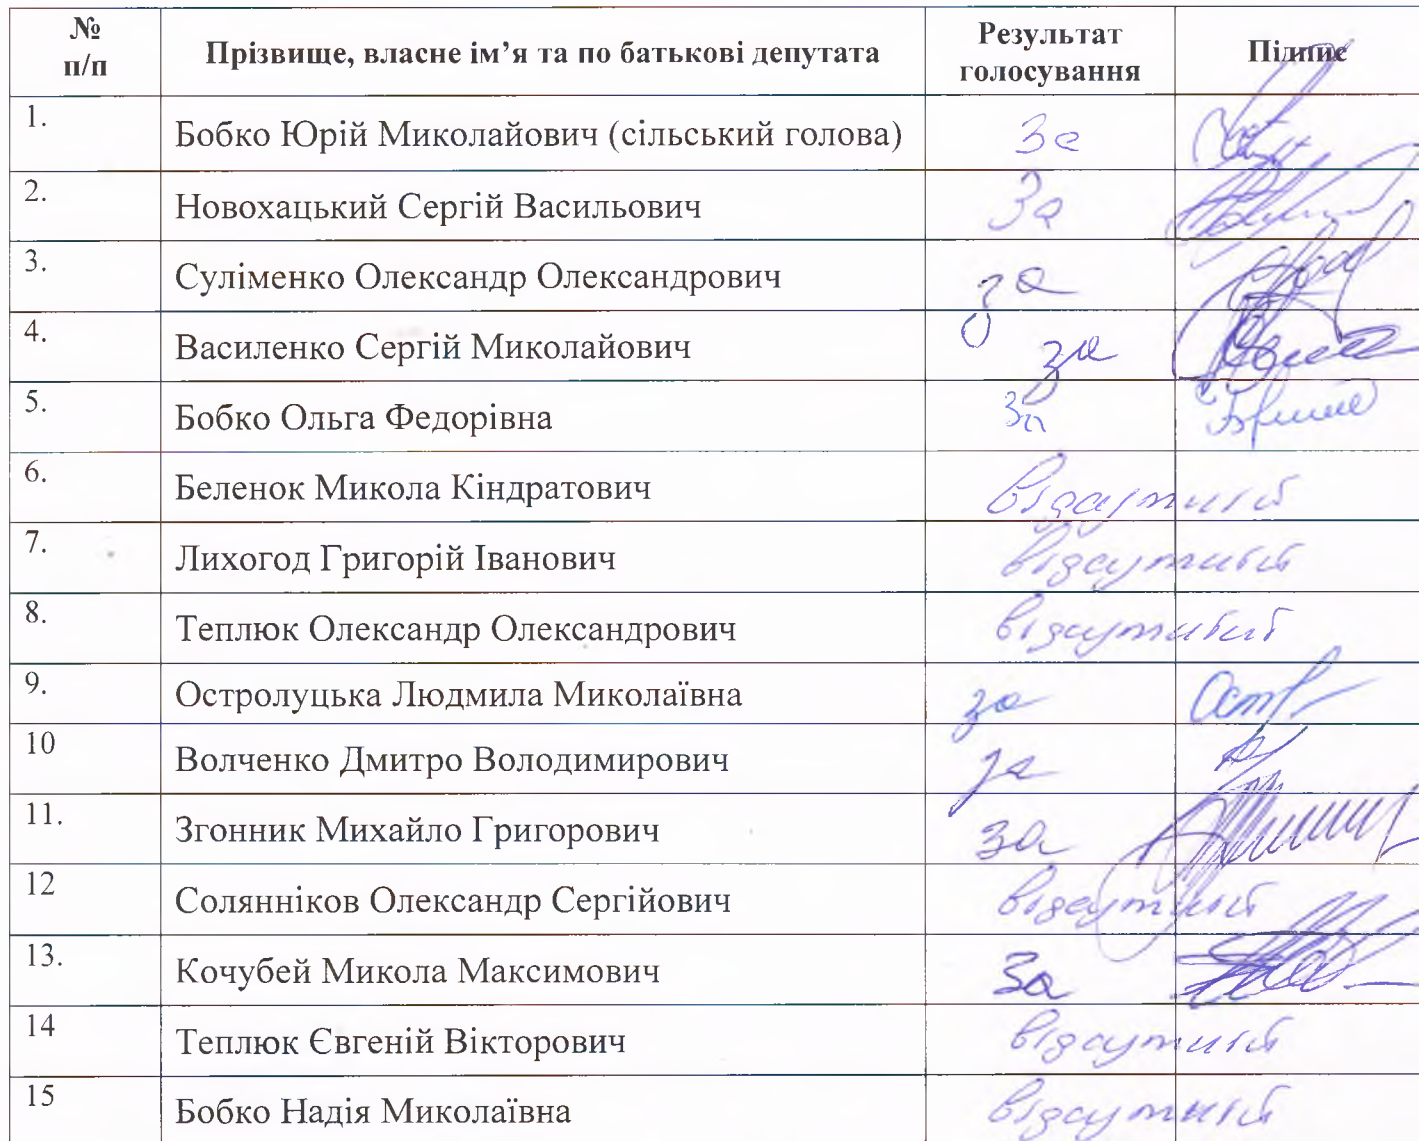 № п/п Прізвище, власне ім’я та по батькові депутата Результат голосування Підпис
1. Бобко Юрій Миколайович (сільський голова) За
2. Новохацький Сергій Васильович За
3. Суліменко Олександр Олександрович за
4. Василенко Сергій Миколайович за
5. Бобко Ольга Федорівна За
6. Беленок Микола Кіндратович відсутній
7. Лихогод Григорій Іванович відсутній
8. Теплюк Олександр Олександрович відсутній
9. Остролуцька Людмила Миколаївна за
10 Волченко Дмитро Володимирович за
11. Згонник Михайло Григорович за
12 Солянніков Олександр Сергійович відсутній
13. Кочубей Микола Максимович За
14 Теплюк Євгеній Вікторович відсутній
15 Бобко Надія Миколаївна відсутній